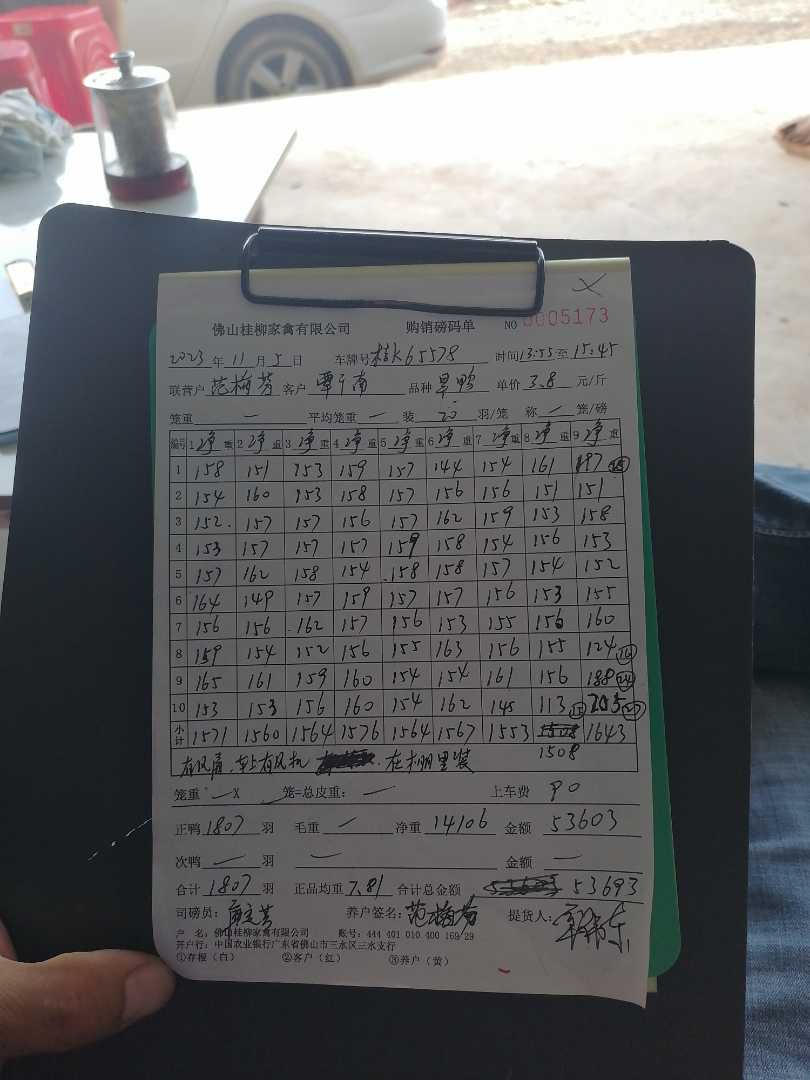 佛山桂柳家禽有限公司 购销磅码单 NO 0005173
2023年11月5日 车牌号桂K65578 时间13:53至15:45
联营户范梅芳客户覃广南 品种旱鸭 单价3.8元/斤
笼重 一 平均笼重 一 装 羽/笼 称 一 笼/磅
编号 1净重 2净重 3净重 4净重 5净重 6净重 7净重 8净重 9净重
1 158 151 153 159 157 144 154 161 197
2 154 160 153 158 157 156 156 151 151
3 152. 157 157 156 157 162 159 153 158
4 153 157 157 157 159 158 154 156 153
5 157 162 158 154 158 158 157 154 152
6 164 149 157 159 157 157 156 153 155
7 156 156 162 157 156 153 155 156 160
8 159 154 152 156 155 163 156 155 124 ⑯
9 165 161 159 160 154 154 161 156 188 ㉔
10 153 153 156 160 154 162 145 113 ⑮ 205
小计 1571 1560 1564 1576 1564 1567 1553 1643
1508
有风扇、车上有风机 在棚里装
笼重 一X 笼=总皮重: 一 上车费 90
正鸭1807羽 毛重 一 净重 14106 金额 53603
次鸭 一 羽 一 金额 一
合计1807羽 正品均重 7.81 合计总金额 53693
司磅员: 养户签名: 范梅芳 提货人:
户 名: 佛山桂柳家禽有限公司 账号: 444 401 010 400 169 29
开户行: 中国农业银行广东省佛山市三水区三水支行
①存根(白) ②客户(红) ③养户(黄)